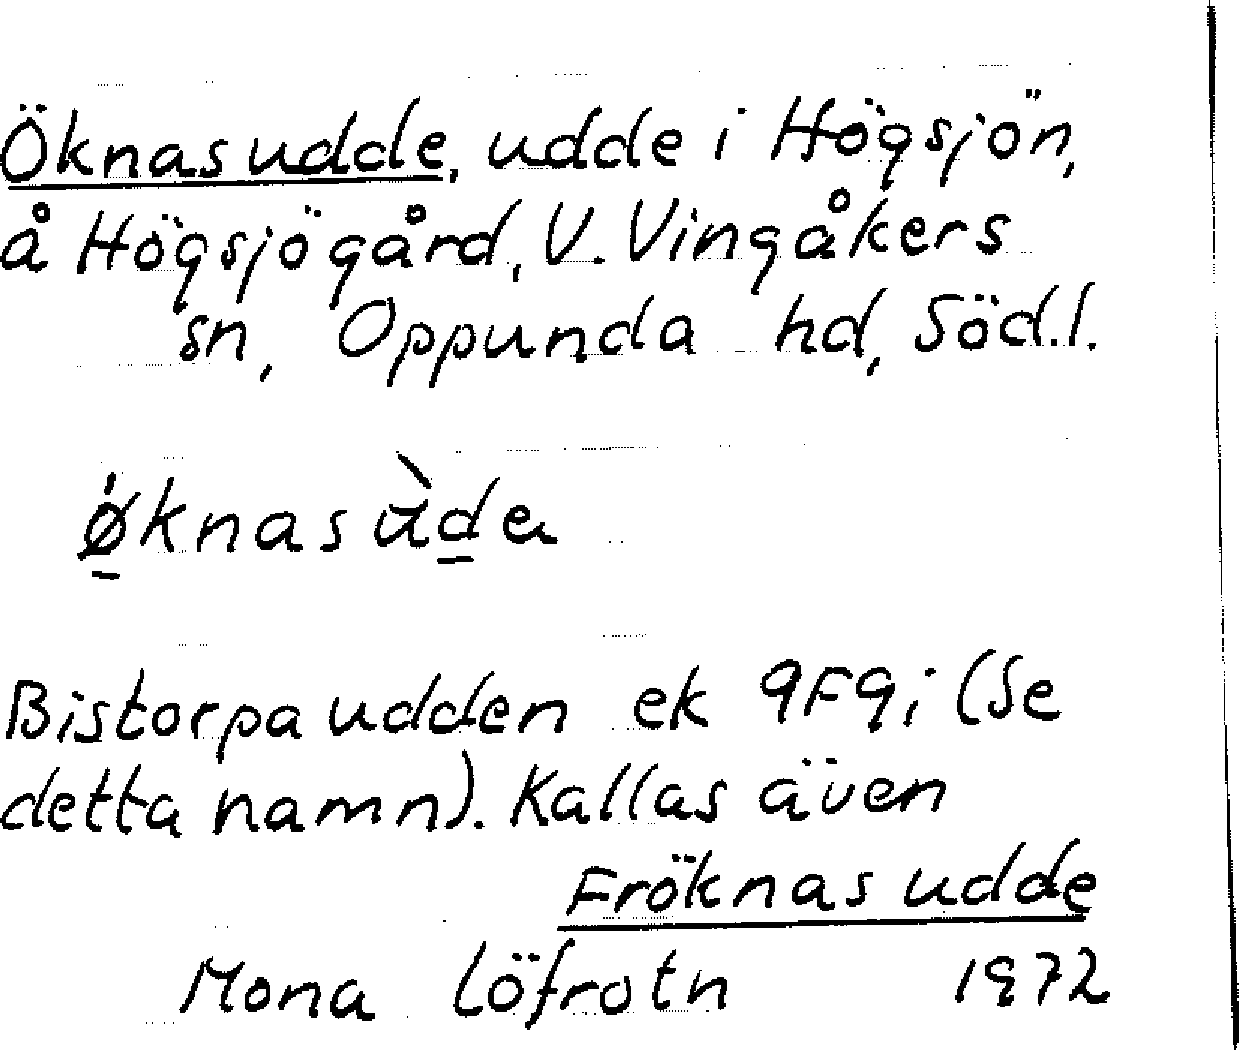 Öknasudde, udde i Högsjön,
å Högsjögård, V. Vingåkers
sn, Oppunda hd, Söd.l.
Bistorpaudden ek 9F9i (Se
detta namn). Kallas även
Fröknasudde
Mona Löfrotn 1972